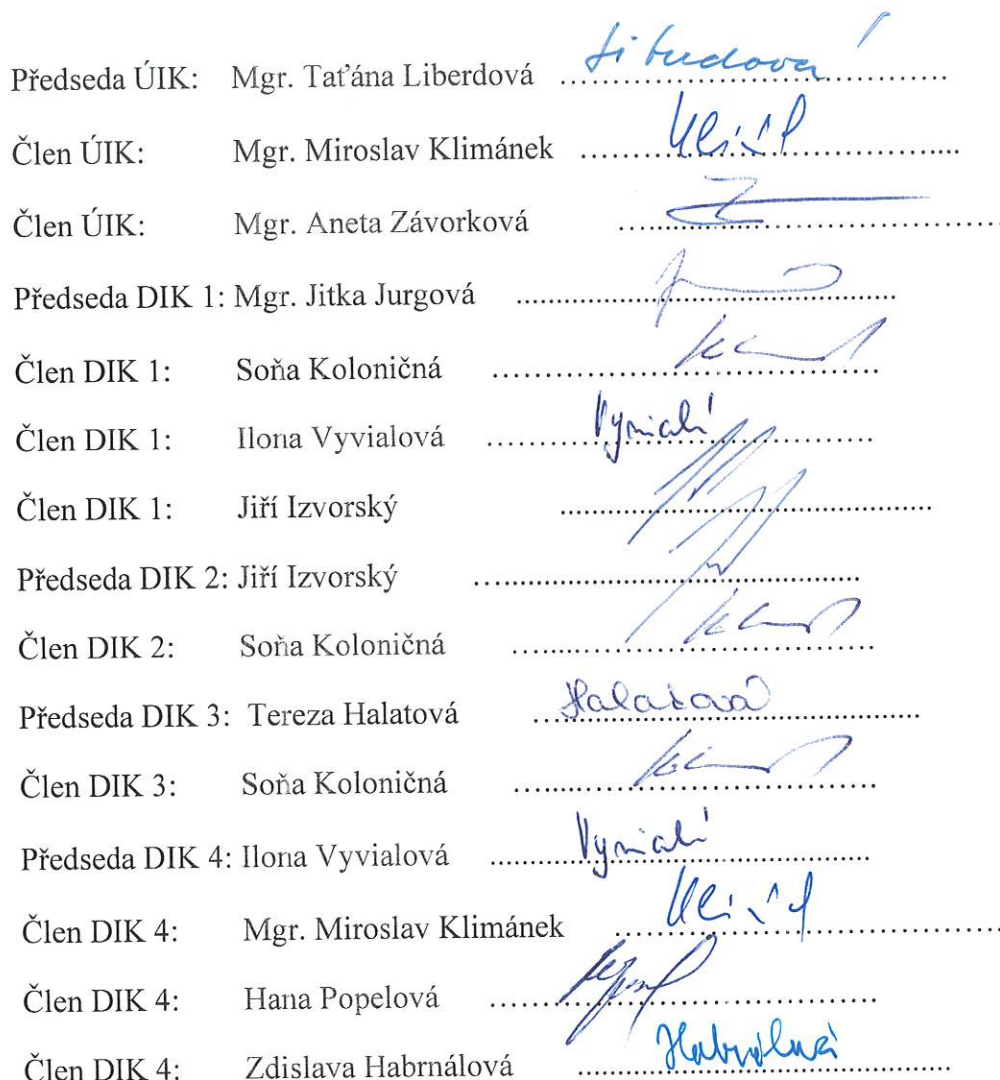 Předseda ÚIK: Mgr. Taťána Liberdová ........................................
Člen ÚIK: Mgr. Miroslav Klimánek ........................................
Člen ÚIK: Mgr. Aneta Závorková ........................................
Předseda DIK 1: Mgr. Jitka Jurgová ........................................
Člen DIK 1: Soňa Koloničná ........................................
Člen DIK 1: Ilona Vyvialová ........................................
Člen DIK 1: Jiří Izvorský ........................................
Předseda DIK 2: Jiří Izvorský ........................................
Člen DIK 2: Soňa Koloničná ........................................
Předseda DIK 3: Tereza Halatová ........................................ Halatová
Člen DIK 3: Soňa Koloničná ........................................
Předseda DIK 4: Ilona Vyvialová ........................................
Člen DIK 4: Mgr. Miroslav Klimánek ........................................
Člen DIK 4: Hana Popelová ........................................
Člen DIK 4: Zdislava Habrnálová ........................................